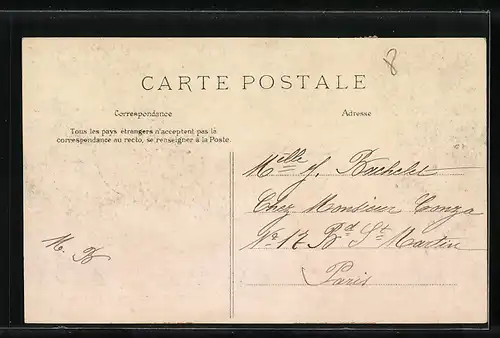 8
CARTE POSTALE
Correspondance
Adresse
Tous les pays étrangers n'acceptent pas la
correspondance au recto, se renseigner à la Poste.
Melle J. Bachelet
Chez Monsieur Conza
No 17 Bd St Martin
Paris
M. B